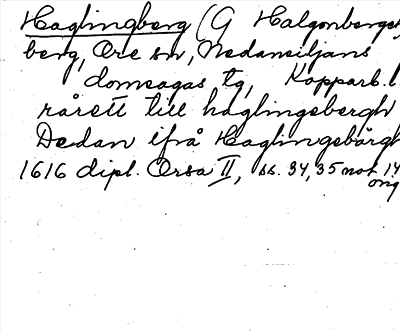 Haglingberg (G Halgonberget,
berg, Ore sn, Nedansiljans
domsagas tg, Kopparb. l.
rårett till haglingsbergh
Dedan ifrå Haglingsbärgh
1616 dipl. Orsa II, ss. 34, 35 not 14
orig